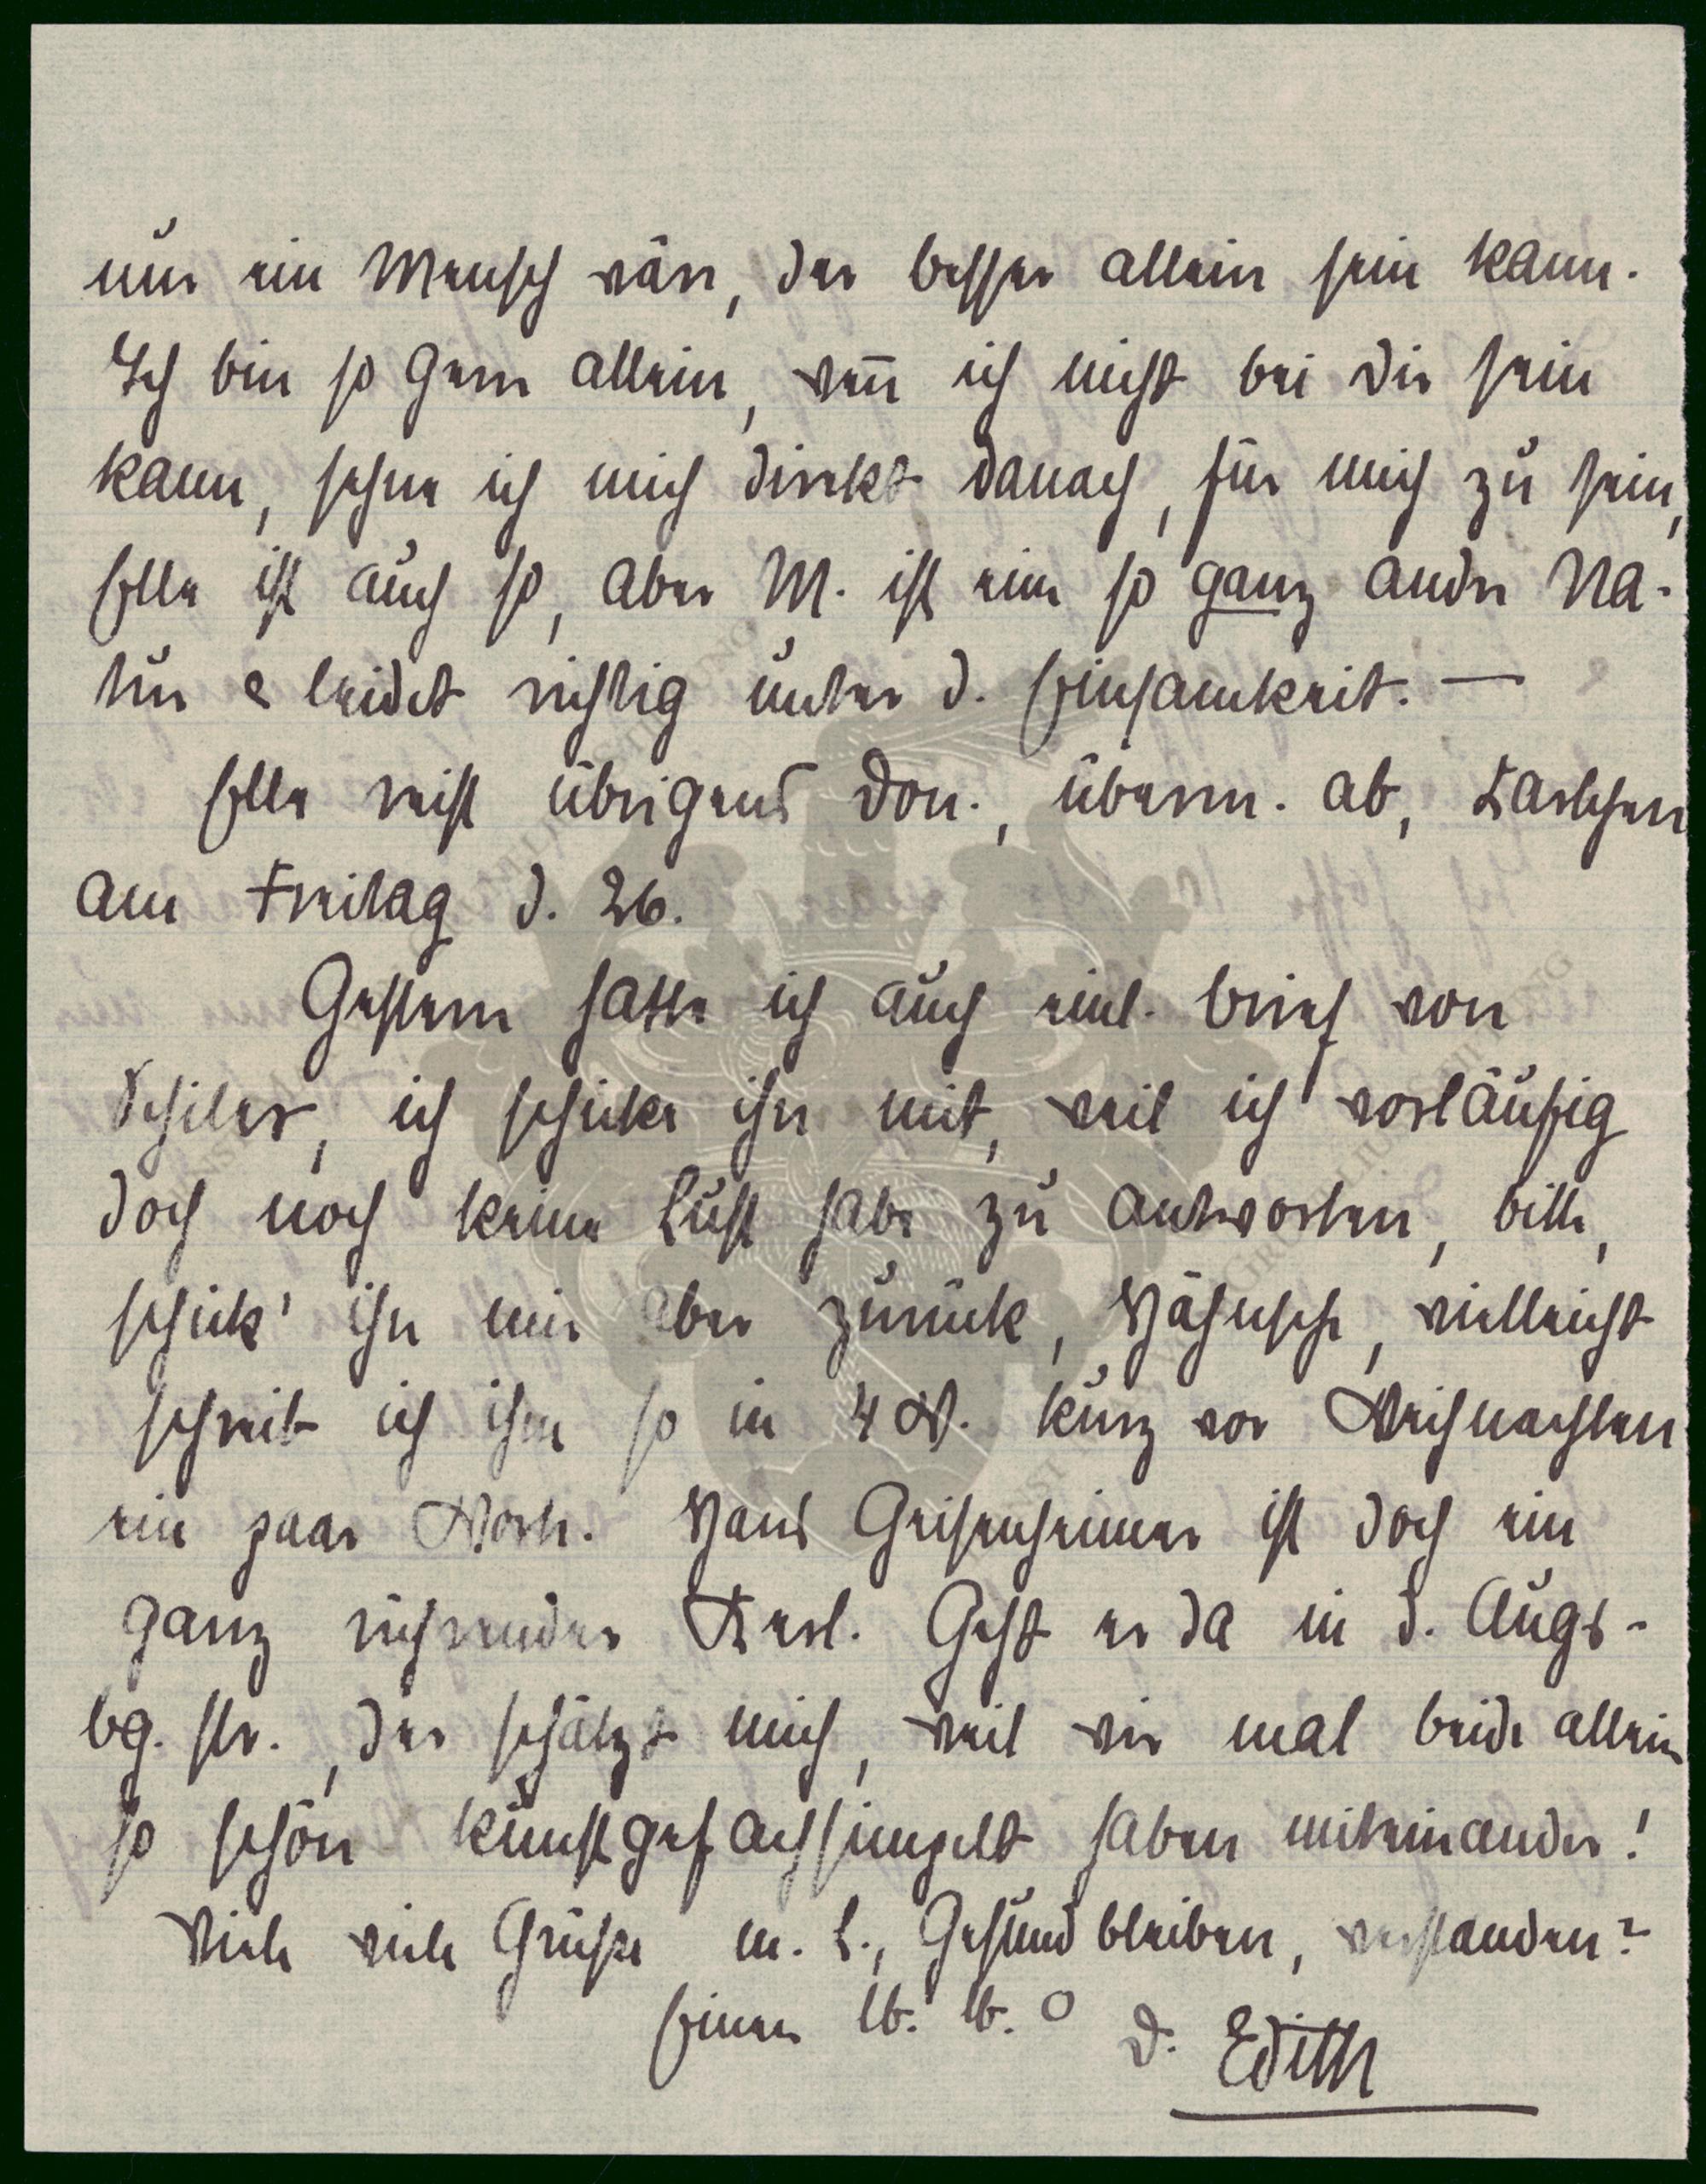 nur ein Mensch wär, der besser allein sein kann.
Ich bin so gern allein, weñ ich nicht bei dir sein
kann, sehne ich mich direkt danach, für mich zu sein,
Elle ist auch so, aber M. ist eine so ganz andre Na-
tur & leidet richtig unter d. Einsamkeit. —
Elle reist übrigens Don., überm. ab, Karlchen
am Freitag d. 26.
Gestern hatte ich auch einl. brief von
ich schicke ihn mit, weil ich vorläufig
doch noch keine Lust habe zu antworten, bitte,
schick' ihn mir aber zurück, Hähnsche, vielleicht
schreib ich ihm so in 4 W. kurz vor Weihnachten
ein paar Worte. Hans Geisenheimer ist doch ein
ganz rührender Kerl. Geht er da in d. Augs-
bg. str., der schätzt mich, weil wir mal beide allein
so schön kunstgefachsimpelt haben miteinander!
Viele viele Grüße m. L., Gesund bleiben, verstanden?
Einen lb. lb. O d. Edith